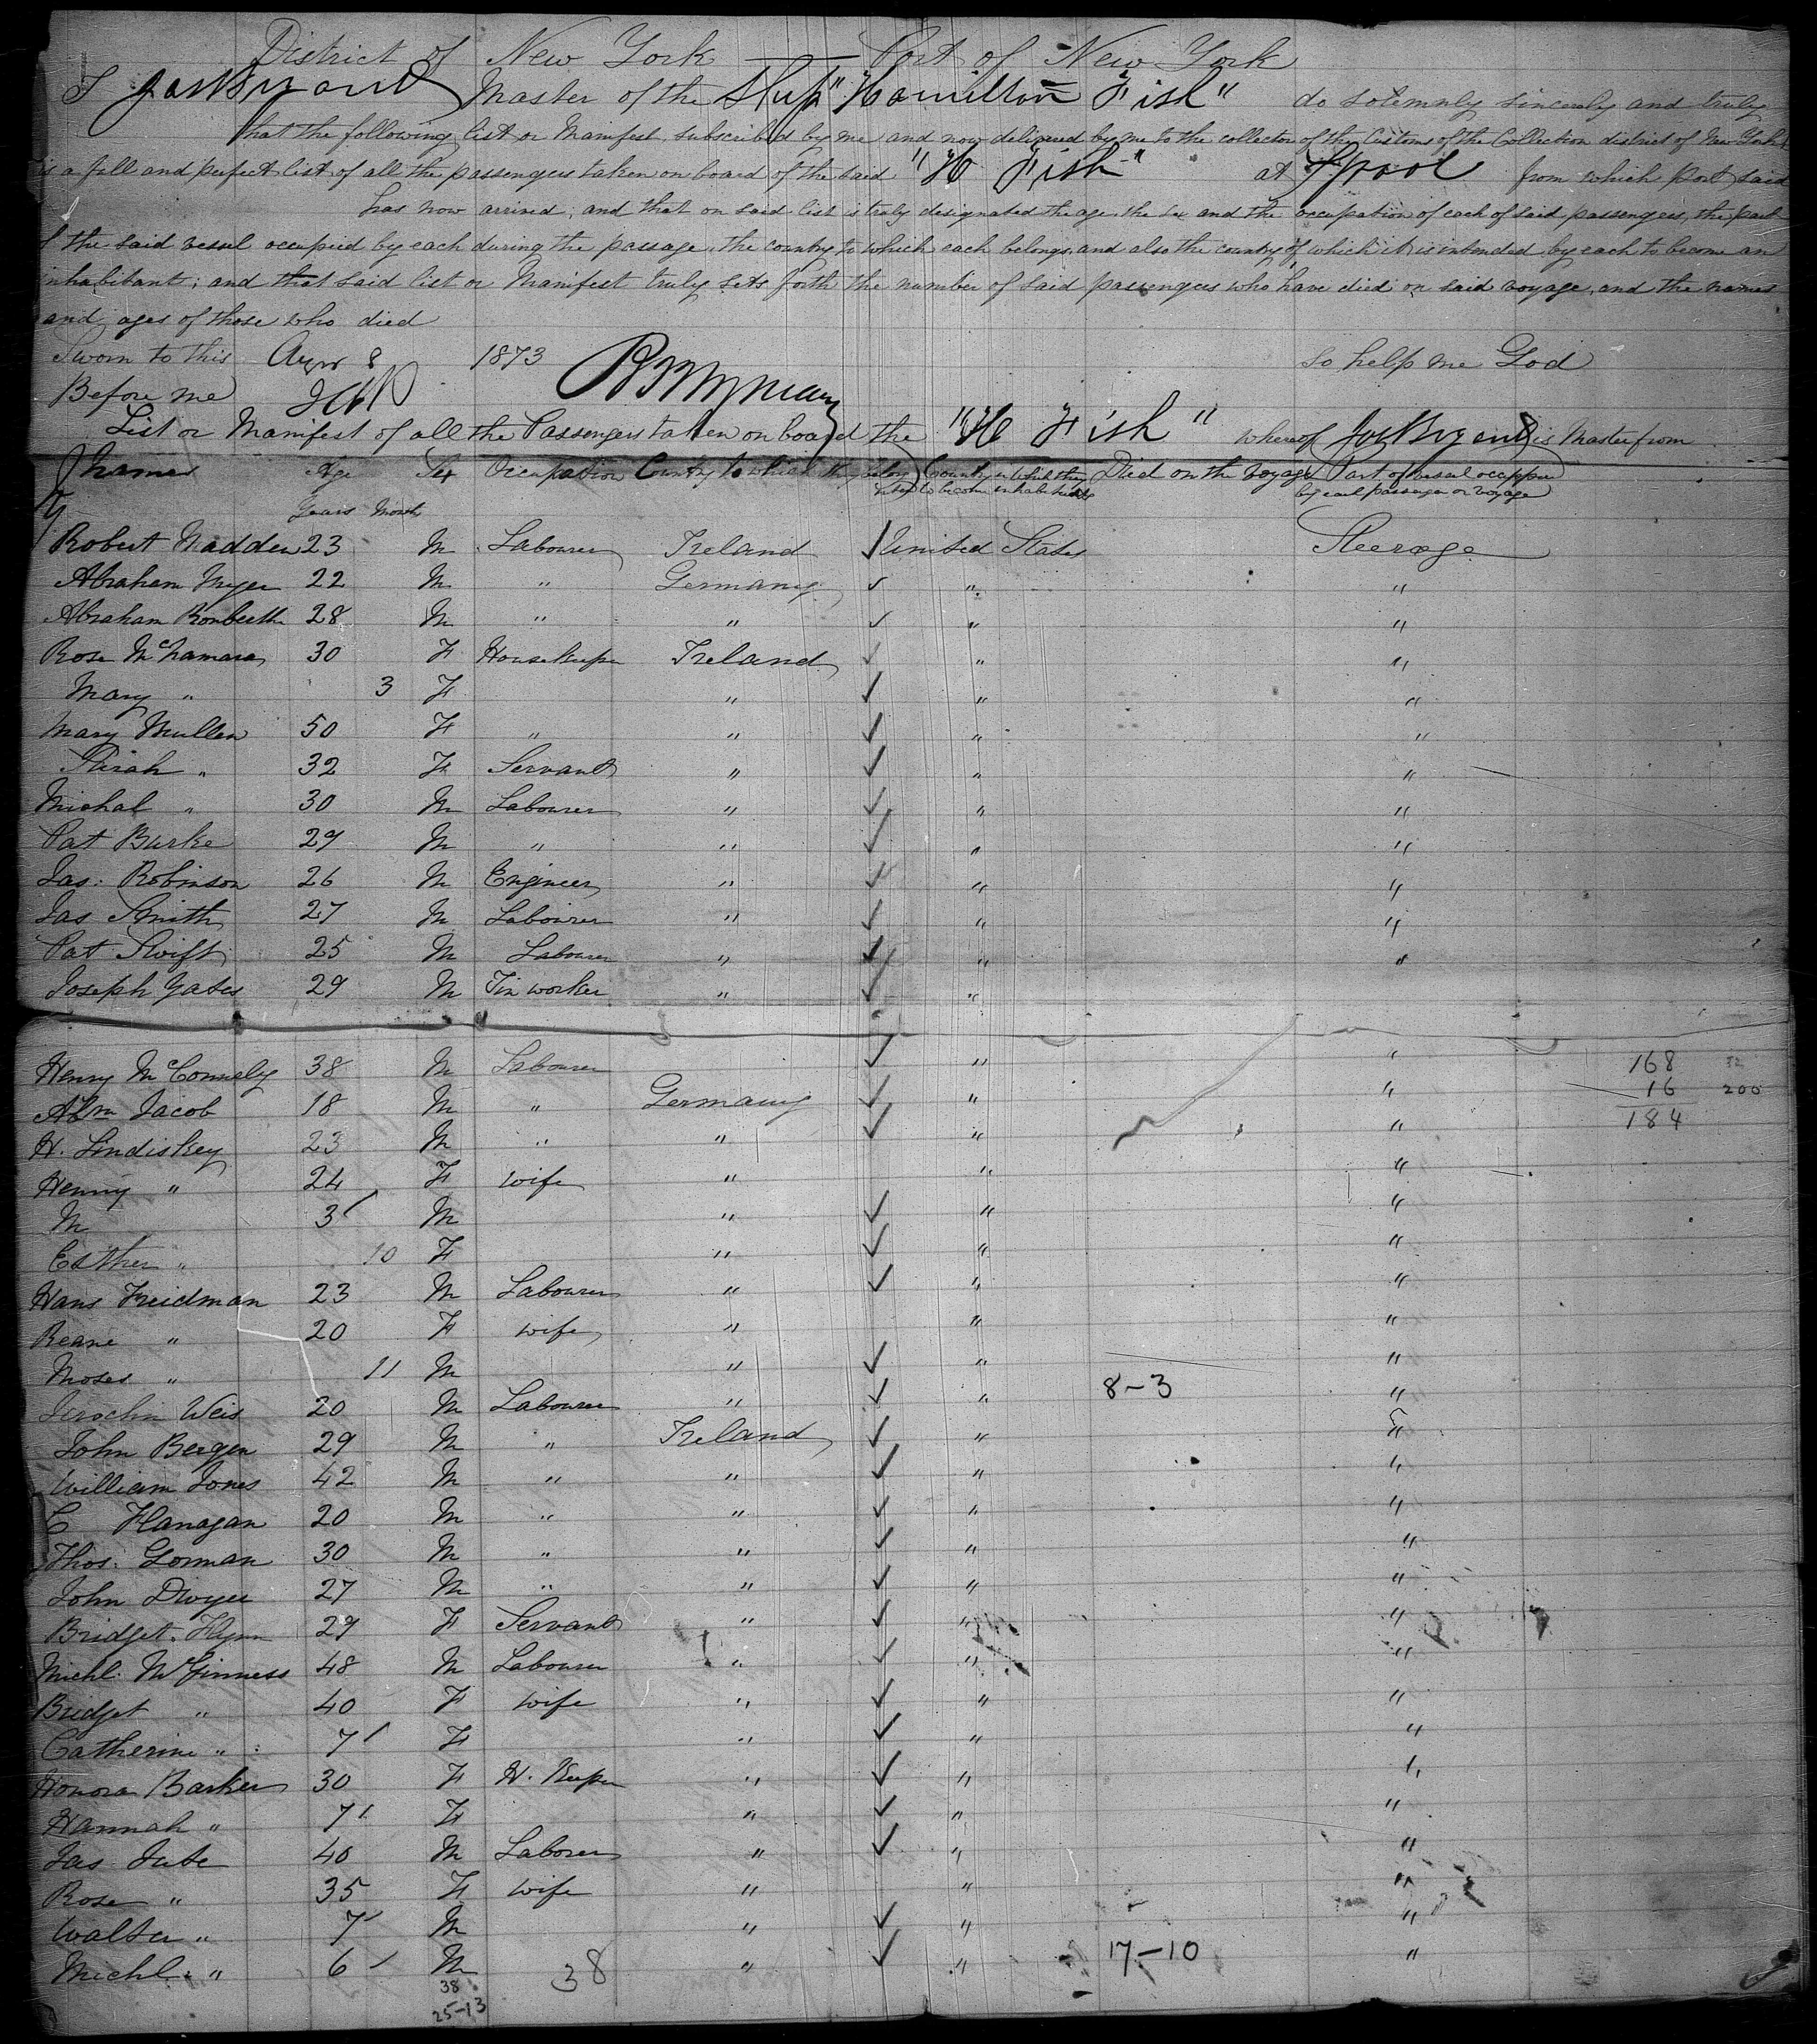 District of New York Port of New York
I Jas Bryand Master of the Ship "Hamilton Fish" do solemnly sincerely and truly
that the following list or Manifest subscribed by me and now delivered by me to the collector of the Customs of the Collection district of New York
is a full and perfect list of all the passengers taken on board of the said "H Fish" at Lpool from which port said
has now arrived, and that on said list is truly designated the age, the sex and the occupation of each of said passengers, the part
of the said vessel occupied by each during the passage, the country to which each belongs and also the country of which it is intended by each to become an
inhabitant; and that said list or Manifest truly sets forth the number of said passengers who have died on said voyage, and the names
and ages of those who died
Sworn to this 8 1873 So help me God
Before me
List or Manifest of all the Passengers taken on board the "H Fish" whereof Jas Bryand is Master from
Names Age Sex Occupation Country to which they belong Country in which they intend to become inhabitants Died on the voyage Part of vessel occupied by each passenger on voyage
Years Month
Robert Madden 23 M Labourer Ireland United States Steerage
Abraham Myer 22 M " Germany " "
Abraham 28 M " " " "
Rose McNamara 30 F Housekeeper Ireland " "
Mary " 3 F " " "
Mary Mullen 50 F " " " "
" 32 F Servant " " "
Michal " 30 M Labourer " " "
Pat Burke 29 M " " " "
Jas: Robinson 26 M Engineer " " "
Jas Smith 27 M Labourer " " "
Pat Swift 25 M Labourer " " "
Joseph Yates 29 M Tin worker " "
Henry McConnely 38 M Labourer " " 168 32
Abm Jacob 18 M " Germany " " 16 200
H. Lindiskey 23 M " " " " 184
Henny " 24 F wife " " "
M 3 M " " "
Esther " 10 F " " "
Hans Freidman 23 M Labourer " " "
Reane " 20 F wife " " "
Moses " 11 M " " "
Weis 20 M Labourer " " 8-3 "
John Bergen 29 M " Ireland " "
William Jones 42 M " " " "
C Flanagan 20 M " " " "
Thos: Gorman 30 M " " " "
John Dwyer 27 M " " " "
Bridget Flynn 29 F Servant " " "
Michl. McGinness 48 M Labourer " " "
Bridget " 40 F wife " " "
Catherine " 7 F " " "
Honora Barker 30 F H. Keeper " " "
Hannah " 7 F " " "
Jas Jute 40 M Laborer " " "
Rose " 35 F wife " " "
Walter " 7 M " " "
Michl. " 6 M " " 17-10 "
38 38
25-13